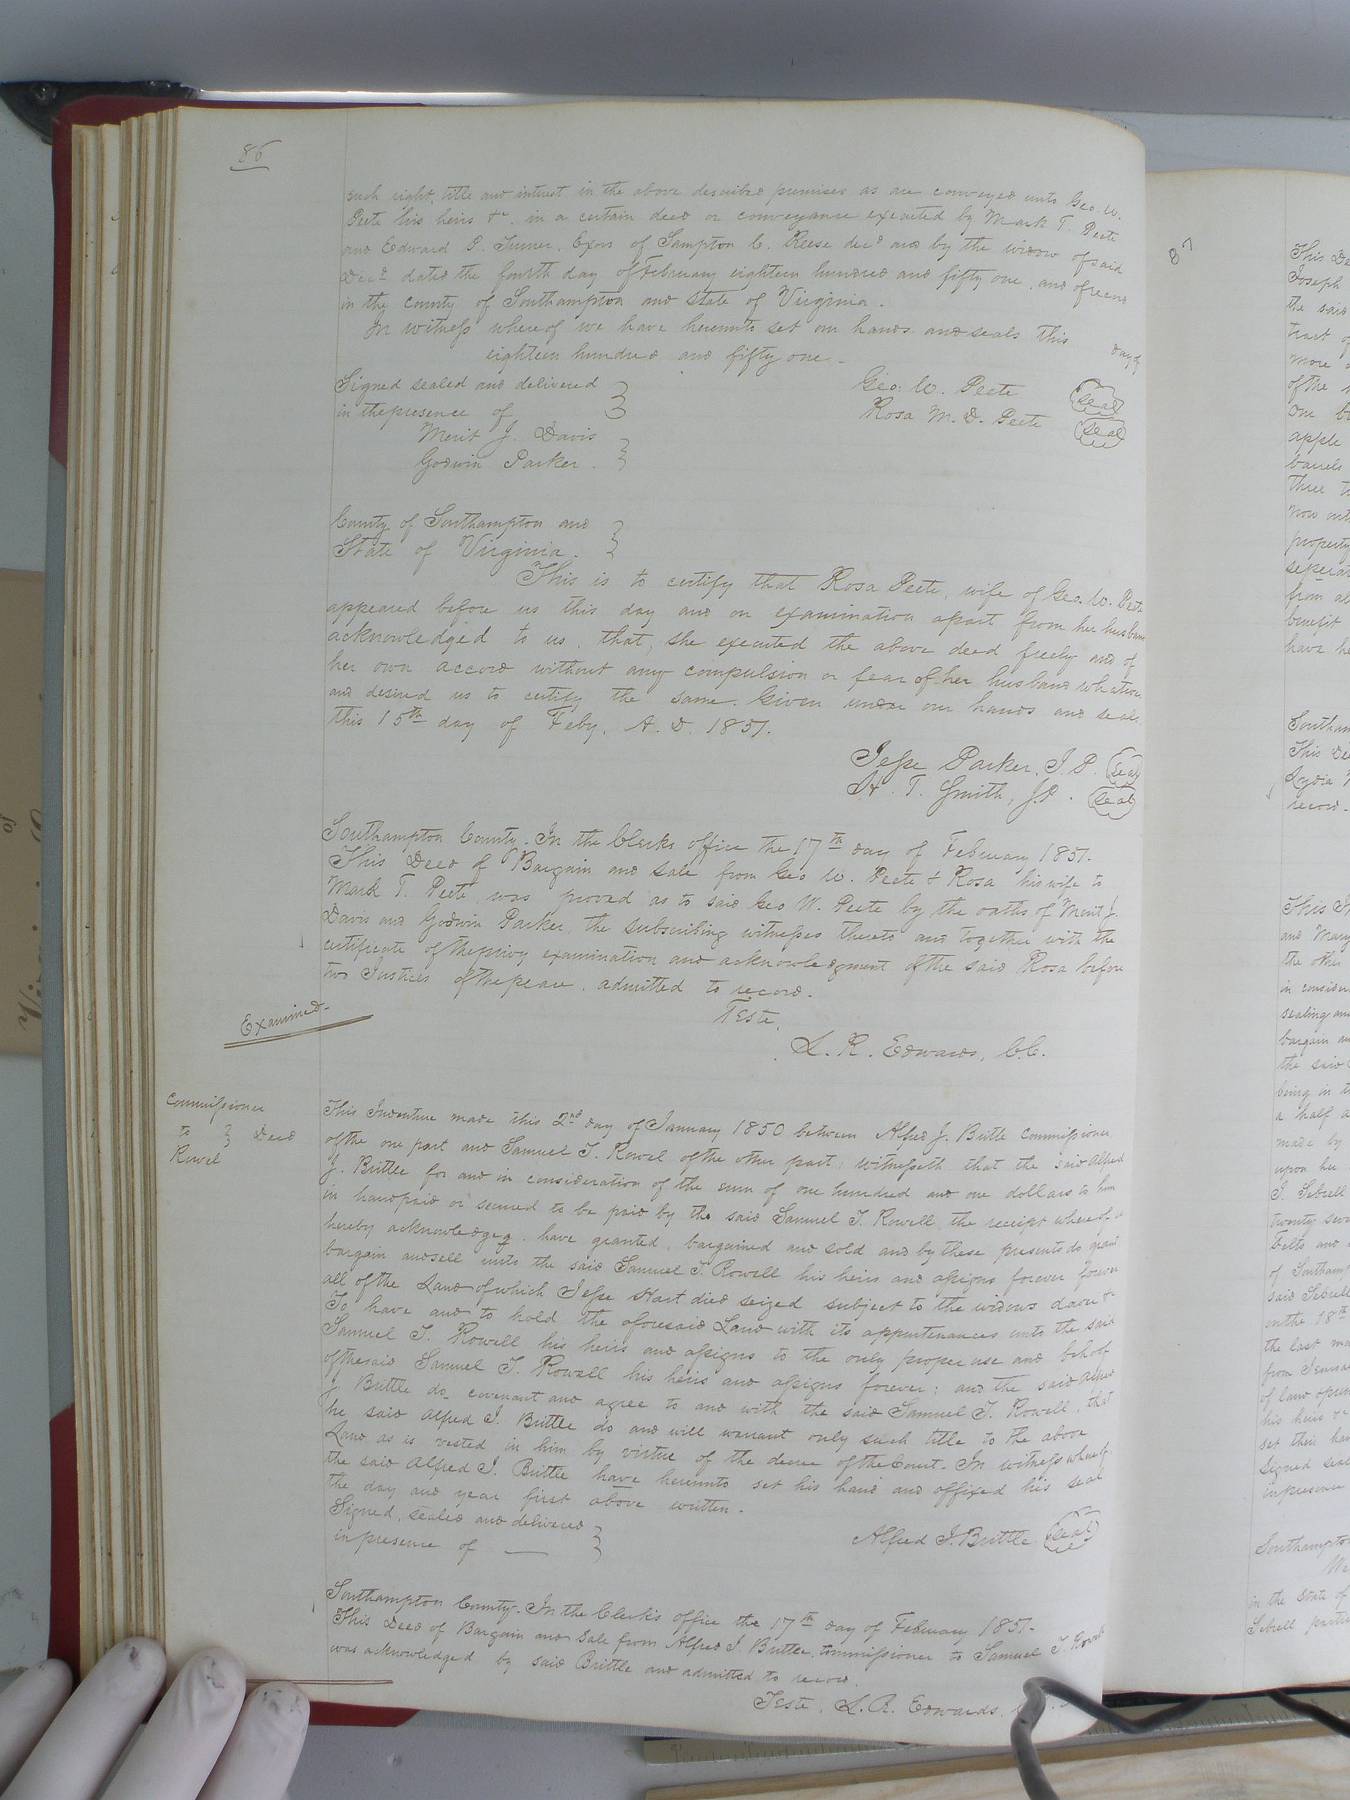 86
such right, title and interest in the above described premises as are conveyed unto Geo. W.
Peete his heirs &c. in a certain deed or conveyance executed by Mark T. Peete
and Edward P. Turner, Exors of Sampton C. Reese decd and by the widow of said
Decd dated the fourth day of February eighteen hundred and fifty one, and of record
in the county of Southampton and state of Virginia.
In witness whereof we have hereunto set our hands and seals this day of
eighteen hundred and fifty one.
Signed sealed and delivered
in the presence of
Merit J. Davis
Godwin Parker.
Geo: W. Peete seal
Rosa M. D. Peete seal
County of Southampton and
State of Virginia.
This is to certify that Rosa Peete, wife of Geo. W. Peete
appeared before us this day and on examination apart from her husband
acknowledged to us, that, she executed the above deed freely and of
her own accord without any compulsion or fear of her husband
and desired us to certify the same. Given under our hands and seals
this 15th day of Feby. A. D. 1851.
Jesse Parker, J. P. seal
H. T. Smith, JP. seal
Southampton County. In the Clerks office the 17th day of February 1851.
This Deed of Bargain and Sale from Geo W. Peete & Rosa his wife to
Mark T. Peete, was proved as to said Geo W. Peete by the oaths of Merit J.
Davis and Godwin Parker, the subscribing witnesses thereto and together with the
certificate of the privy examination and acknowledgment of the said Rosa before
two Justices of the peace, admitted to record.
Teste,
L. R. Edwards, C.C.
Examined
Commissioner
to } Deed
Rowel
This Indenture made this 2nd day of January 1850 between Alfred J. Buttle Commissioner
of the one part and Samuel T. Rowel of the other part; witnesseth that the said Alfred
J. Buttle for and in consideration of the sum of one hundred and one dollars to him
in hand paid or secured to be paid by the said Samuel T. Rowell, the receipt whereof is
hereby acknowledged, have granted, bargained and sold and by these presents do grant
bargain and sell unto the said Samuel T. Rowell his heirs and assigns forever forever
all of the Land of which Jesse Hart died seized subject to the widows dower &
To have and to hold the aforesaid Land with its appurtenances unto the said
Samuel T. Rowell his heirs and assigns to the only proper use and behoof
of the said Samuel T. Rowell his heirs and assigns forever; and the said Alfred
J. Buttle do covenant and agree to and with the said Samuel T. Rowell, that
he said Alfred J. Buttle do and will warrant only such title to the above
Land as is vested in him by virtue of the decree of the Court. In witness whereof
the said Alfred J. Buttle have hereunto set his hand and affixed his seal
the day and year first above written.
Signed, sealed and delivered
in presence of
Alfred J. Buttle seal
Southampton County. In the Clerk's office the 17th day of February 1851.
This Deed of Bargain and Sale from Alfred J. Buttle, commissioner to Samuel T. Rowell
was acknowledged by said Buttle and admitted to record.
Teste, L. R. Edwards,
87
Joseph
the said
tract of
more
of the
one
apple
barrels
three
now
property
from
benefit
have
record.
and Mary
the other
in
sealing and
bargain
the said
being in
a half
made by
upon her
J. Sebrell
twenty
belts and
of Southamp
said Sebrell
on the 18th
the last
from
of land
his heirs
set their
Signed
in presence
Southampton
in the State of
Sebrell